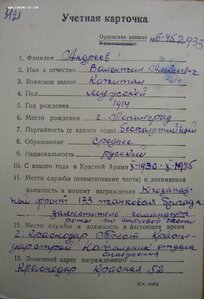 Учетная карточка
Орденская книжка
№ Б-452933
1. Фамилия Андреев
2. Имя и отчество Валентин Алексеевич
3. Воинское звание Капитан
4. Пол мужской
5. Год рождения 1914
6. Место рождения г. Ленинград
7. Партийность (с какого года) беспартийный
8. Образование среднее
9. Национальность русский
10. С какого года в Красной Армии с 1936 - по 1945
11. Место службы (наименование части) и занимаемая
должность в момент награждения Югозапад-
ный фронт 173 танковая бригада
заместитель командира
роты по строевой части
12. Место службы и должность в настоящее время
г. Краснодар Трест Красно-
дарстрой Начальник отдела
снабжения
13. Домашний адрес награжденного
Краснодар Красная 52